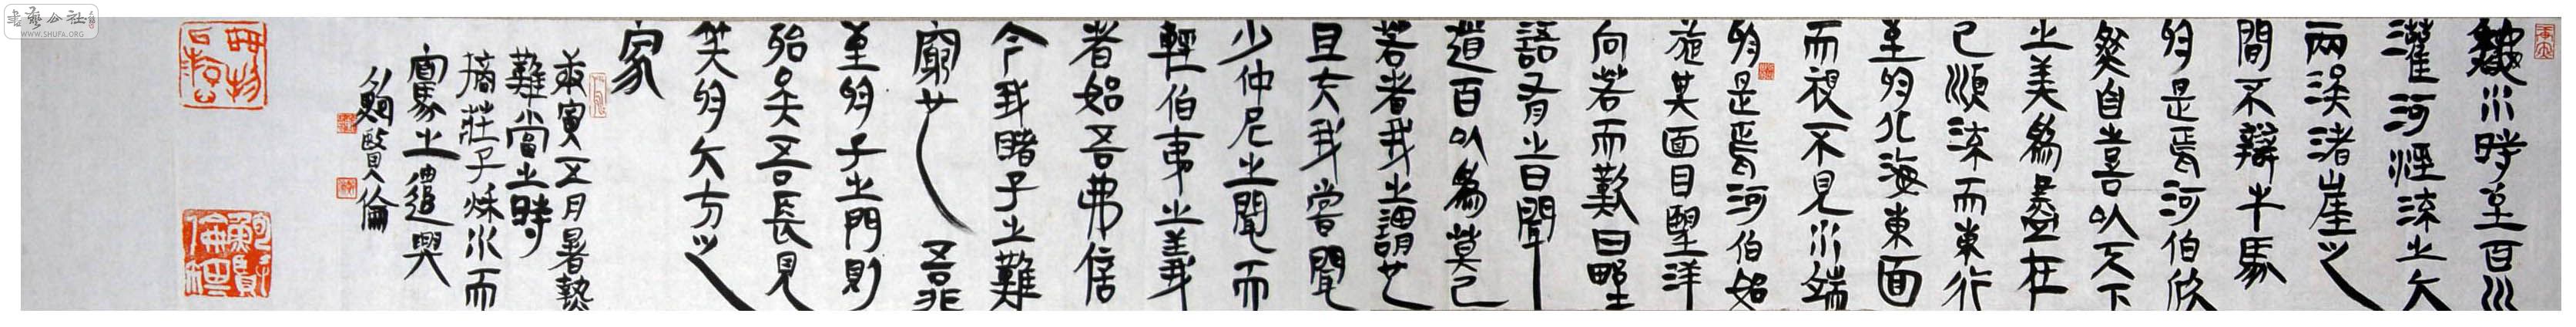 龝水時至百川
灌河涇流之大
兩涘渚崖之
間不辯牛馬
於是焉河伯欣
然自喜以天下
之美爲盡在
己順流而東行
至於北海東面
而視不見水端
於是焉河伯始
旋其面目望洋
向若而歎曰野
語有之曰聞
道百以爲莫己
若者我之謂也
且夫我嘗聞
少仲尼之聞而
輕伯夷之義
者始吾弗信
今我睹子之難
窮也吾非
至於子之門則
殆矣吾長見
笑於大方之
家
庚寅五月暑熱
難當之時
摘莊子秌水而
寫之遣興
鮑賢倫
鮑賢倫印
書藝公社
WWW.SHUFA.ORG